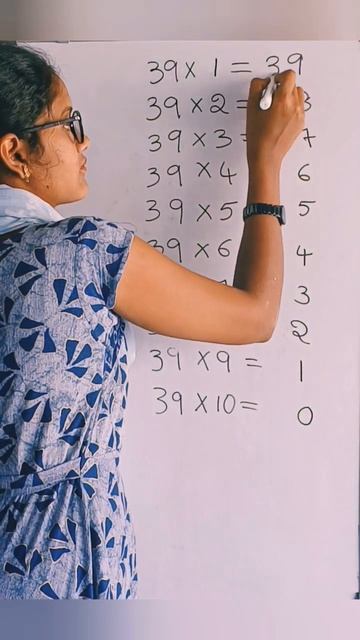 39 × 1 = 39
39 × 2 = 8
39 × 3 = 7
39 × 4 6
39 × 5 5
39 × 6 4
3
2
39 × 9 = 1
39 × 10 = 0